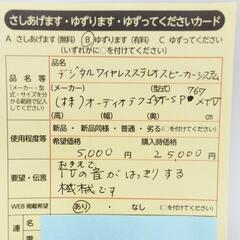 さしあげます・ゆずります・ゆずってくださいカード
A さしあげます(無料) B ゆずります(有料) C ゆずってください
(いずれかに○を付けてください)
品名 デジタルワイヤレスステレオスピーカーシステム
メーカー・型式・サイズを分かる範囲で記入してください
(メーカー) (型式) 767
(株)オーディオテクニカ
(横) (高) (奥) (cm)
使用程度等 新品・新品同様・普通・劣る(○を付けてください)
希望価格 購入時価格
5,000円 25,000円
要望・伝言
TVの音がはっきりする
機械です
WEB掲載希望 あり・なし (○を付けてください)
連
名